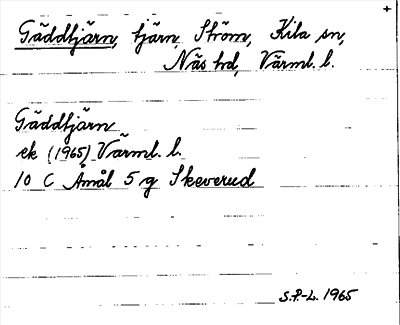 +
Gäddtjärn, tjärn, Ström, Kila sn,
Näs hd, Värml. l.
Gäddtjärn
ek (1965) Värml. l.
10 C Åmål 5 g Skeverud
S.P-L. 1965